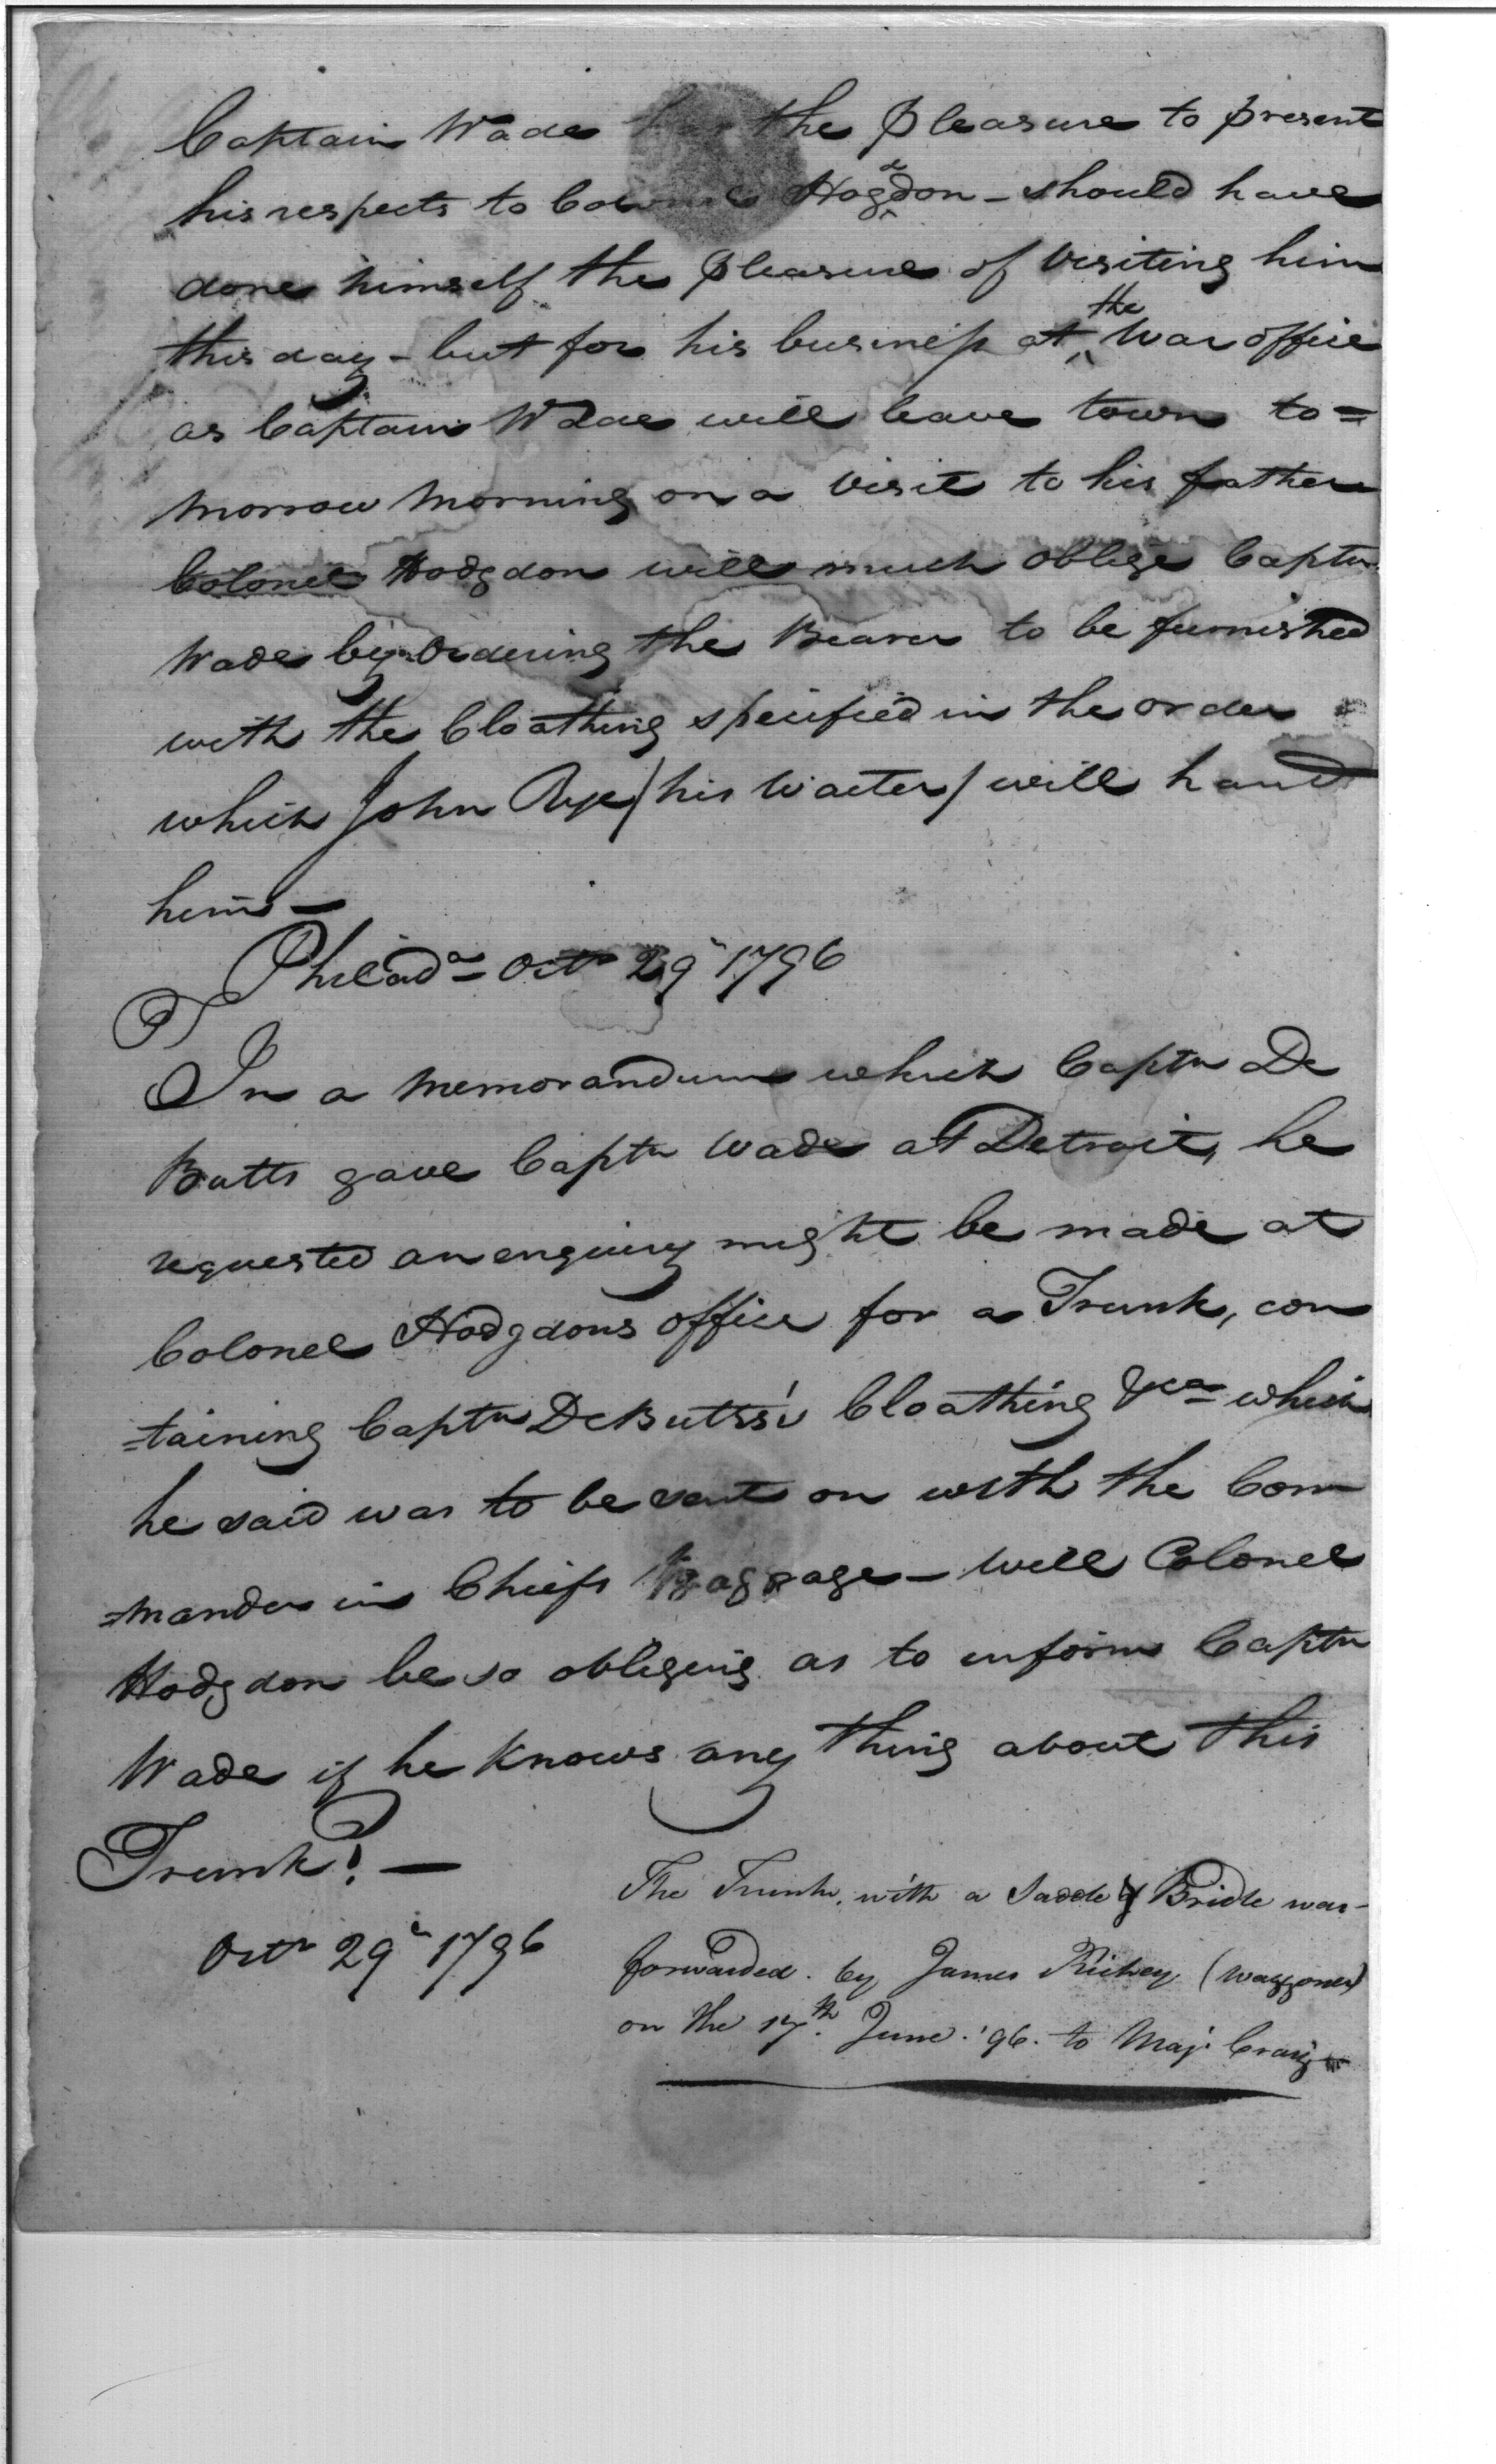 Captain Wade has the pleasure to present
his respects to Colonel Hogddon - should have
done himself the pleasure of visiting him
this day - but for his business at the War office
as Captain Wade will leave town to=
morrow morning on a visit to his father
Colonel Hodgdon will much oblige Captn
Wade by Ordering the Bearer to be furnished
with the Cloathing specified in the order
which John Rye / his Waiter / will hand
him —
Philada Octr 29" 1796
In a memorandum which Captn De
Butts gave Captn Wade at Detroit, he
requested an enquiry might be made at
Colonel Hodgdons office for a Trunk, con
=taining Captn DeButts's Cloathing &ca which
he said was to be sent on with the Com
=mander in Chiefs Baggage — Will Colonel
Hodgdon be so obliging as to inform Captn
Wade if he knows any thing about this
Trunk? —
Octr 29" 1796
The Trunk, with a Saddle & Bridle was
forwarded by James Richey (Waggoner)
on the 17th June '96. to Majr Craig